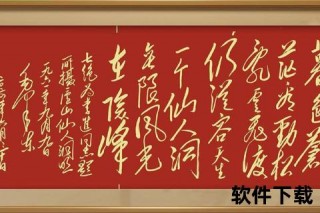 暮色蒼
茫看劲松
乱雲飛渡
仍從容天生
一个仙人洞
无限風光
在險峰
七绝为李進同志题
所攝庐山仙人洞照
一九六一年九月九日
毛泽东
软件下载